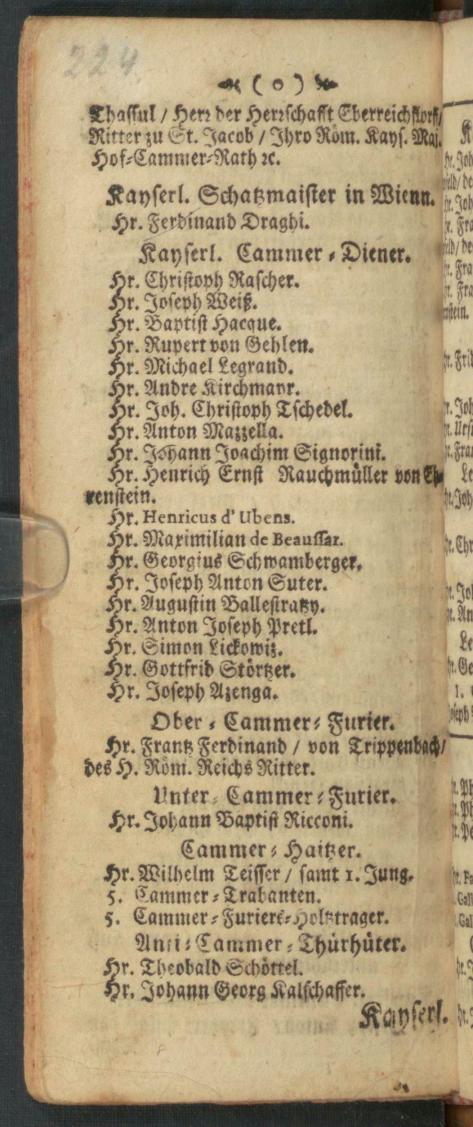 224
( o )
Thassul / Herr der Herrschafft Eberreichstorff /
Ritter zu St. Jacob / Ihro Röm. Kays. Maj.
Hof-Cammer-Rath ꝛc.
Kayserl. Schatzmaister in Wienn.
Hr. Ferdinand Draghi.
Kayserl. Cammer-Diener.
Hr. Christoph Rascher.
Hr. Joseph Weiß.
Hr. Baptist Hacque.
Hr. Rupert von Gehlen.
Hr. Michael Legrand.
Hr. Andre Kirchmayr.
Hr. Joh. Christoph Tschedel.
Hr. Anton Mazzella.
Hr. Johann Joachim Signorini.
Hr. Henrich Ernst Rauchmüller von Eh-
renstein.
Hr. Henricus d' Ubens.
Hr. Maximilian de Beaussar.
Hr. Georgius Schwamberger.
Hr. Joseph Anton Suter.
Hr. Augustin Ballestratzy.
Hr. Anton Joseph Pretl.
Hr. Simon Lickowiz.
Hr. Gottfrid Störtzer.
Hr. Joseph Azenga.
Ober-Cammer-Furier.
Hr. Frantz Ferdinand / von Trippenbach /
des H. Röm. Reichs Ritter.
Unter-Cammer-Furier.
Hr. Johann Baptist Ricconi.
Cammer-Haitzer.
Hr. Wilhelm Teisser / samt 1. Jung.
5. Cammer-Trabanten.
5. Cammer-Furiers-Holtztrager.
Anti-Cammer-Thürhüter.
Hr. Theobald Schöttel.
Hr. Johann Georg Kalschaffer.
Kayserl.